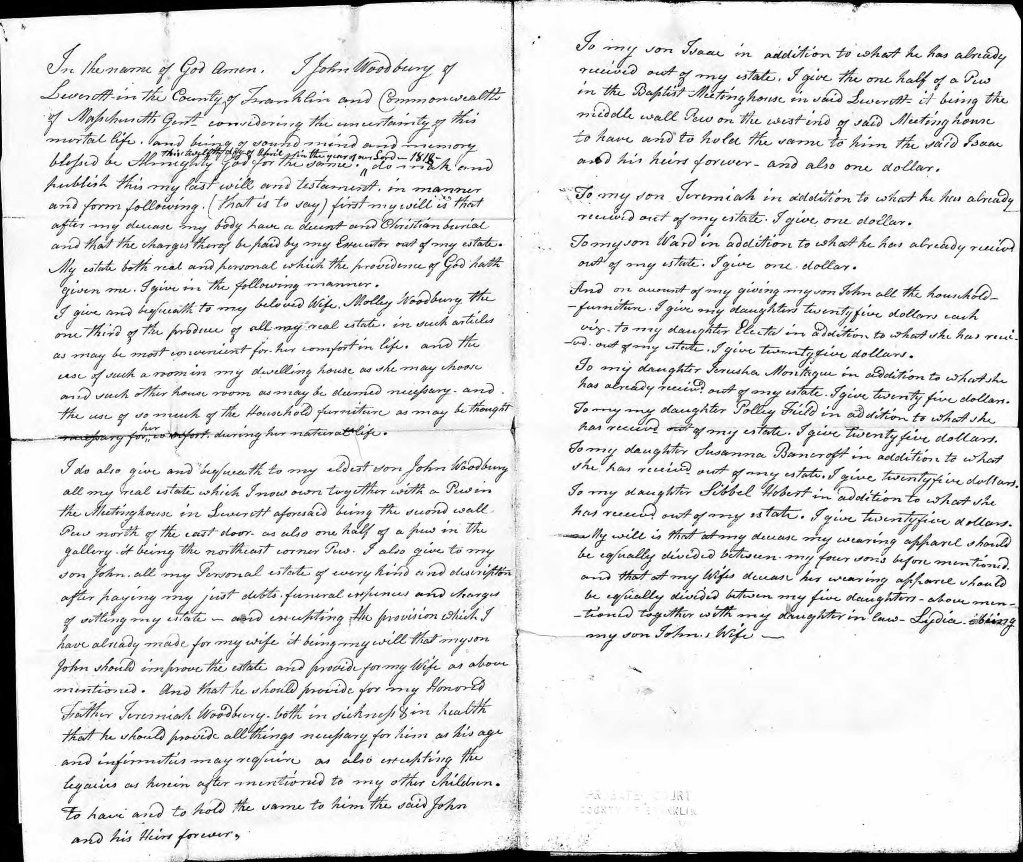 In the name of God Amen. I John Woodbury of
Leverett in the County of Franklin and Commonwealth
of Massachusetts Gent. considering the uncertainty of this
mortal life, and being of sound mind and memory
this twelfth day of April in the year of our Lord - 1818
blessed be Almighty God for the same, ^ do make and
publish this my last will and testament, in manner
and form following. (that is to say) first my will is that
after my decease my body have a decent and Christian burial
and that the charges therof be paid by my Executor out of my estate.
My estate both real and personal which the providence of God hath
given me. I give in the following manner.
I give and bequeath to my beloved Wife, Molley Woodbury the
one third of the produce of all my real estate. in such articles
as may be most convenient for her comfort in life. and the
use of such a room in my dwelling house as she may choose
and such other house room as may be deemed necessary. and
the use of so much of the Household furniture as may be thought
necessary for her comfort, during her natural life.
I do also give and bequeath to my eldest son John Woodbury
all my real estate which I now own together with a Pew in
the Meetinghouse in Leverett aforesaid being the second wall
Pew north of the east door. as also one half of a pew in the
gallery. it being the northeast corner Pew. I also give to my
son John, all my Personal estate of every kind and description
after paying my just debts, funeral expences and charges
of settling my estate — and excepting the provision which I
have already made for my wife it being my will that my son
John should improve the estate and provide for my Wife as above
mentioned. And that he should provide for my Honored
Father Jeremiah Woodbury. both in sickness & in health
that he should provide all things necessary for him as his age
and infirmities may require as also excepting the
legacies as herein after mentioned to my other children.
To have and to hold the same to him the said John
and his Heirs forever.
To my son Isaac in addition to what he has already
received out of my estate. I give the one half of a Pew
in the Baptist Meetinghouse in said Leverett it being the
middle wall Pew on the west end of said Meetinghouse
to have and to hold the same to him the said Isaac
and his heirs forever - and also one dollar.
To my son Jeremiah in addition to what he has already
received out of my estate. I give one dollar.
To my son Ward in addition to what he has already receivd
out of my estate. I give one dollar.
And on account of my giving my son John all the household-
-furniture. I give my daughters twenty five dollars each
viz. to my daughter Electa in addition to what she has recei-
-ved. out of my estate. I give twenty five dollars.
To my daughter Jerusha Montague in addition to what she
has already receivd out of my estate. I give twenty five dollars.
To my my daughter Polley Field in addition to what she
has receivd out of my estate. I give twenty five dollars.
To my daughter Susanna Bancroft in addition to what
she has receivd out of my estate. I give twenty five dollars.
To my daughter Sibbel Hobert in addition to what she
has receivd out of my estate. I give twenty five dollars.
My will is that at my decease my wearing apparel should
be equally divided between my four sons before mentioned.
and that at my Wifes decease her wearing apparel should
be equally divided between my five daughters - above men-
-tioned together with my daughter in law - Lydia - being
my son John's Wife —
PROBATE COURT
COUNTY OF FRANKLIN